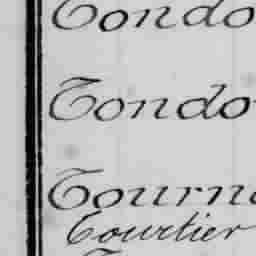 Condo
Condo
Tourn
Courtier